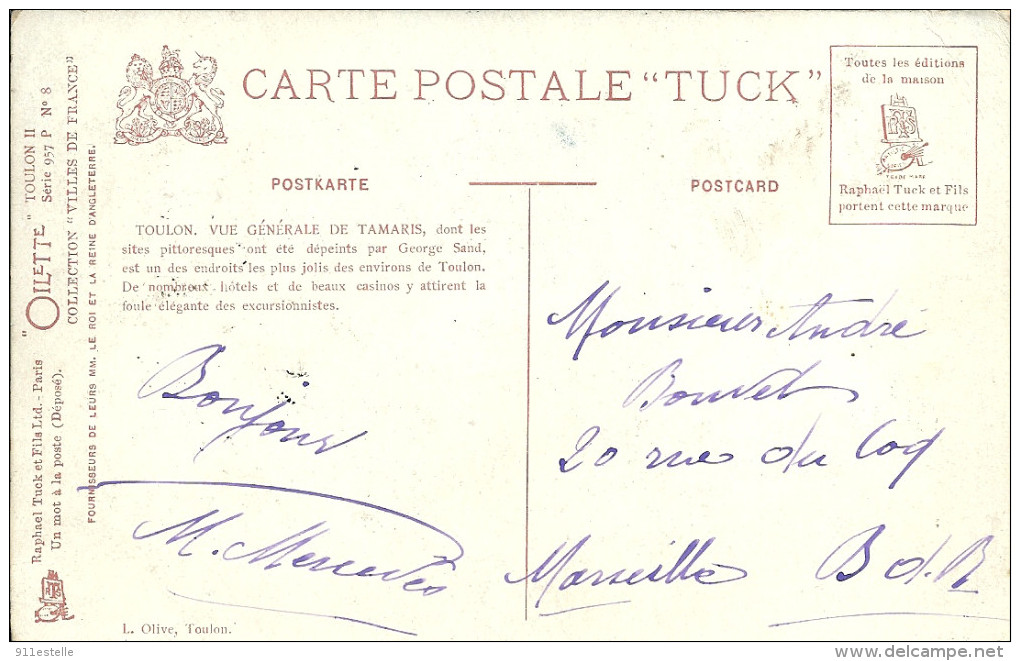 CARTE POSTALE "TUCK"
Toutes les éditions
de la maison
TRADE MARK
Raphaël Tuck et Fils
portent cette marque
POSTKARTE
POSTCARD
TOULON. VUE GÉNÉRALE DE TAMARIS, dont les
sites pittoresques ont été dépeints par George Sand,
est un des endroits les plus jolis des environs de Toulon.
De nombreux hôtels et de beaux casinos y attirent la
foule élégante des excursionnistes.
Bonjour
M. Mercedes
Monsieur André
Bouvet
20 rue du Coq
Marseille B d. R
L. Olive, Toulon.
Raphael Tuck et Fils Ltd. - Paris "OILETTE" TOULON II
Un mot à la poste (Déposé). Série 957 P Nº 8
COLLECTION "VILLES DE FRANCE"
FOURNISSEURS DE LEURS MM. LE ROI ET LA REINE D'ANGLETERRE.
911estelle
delcampe.net